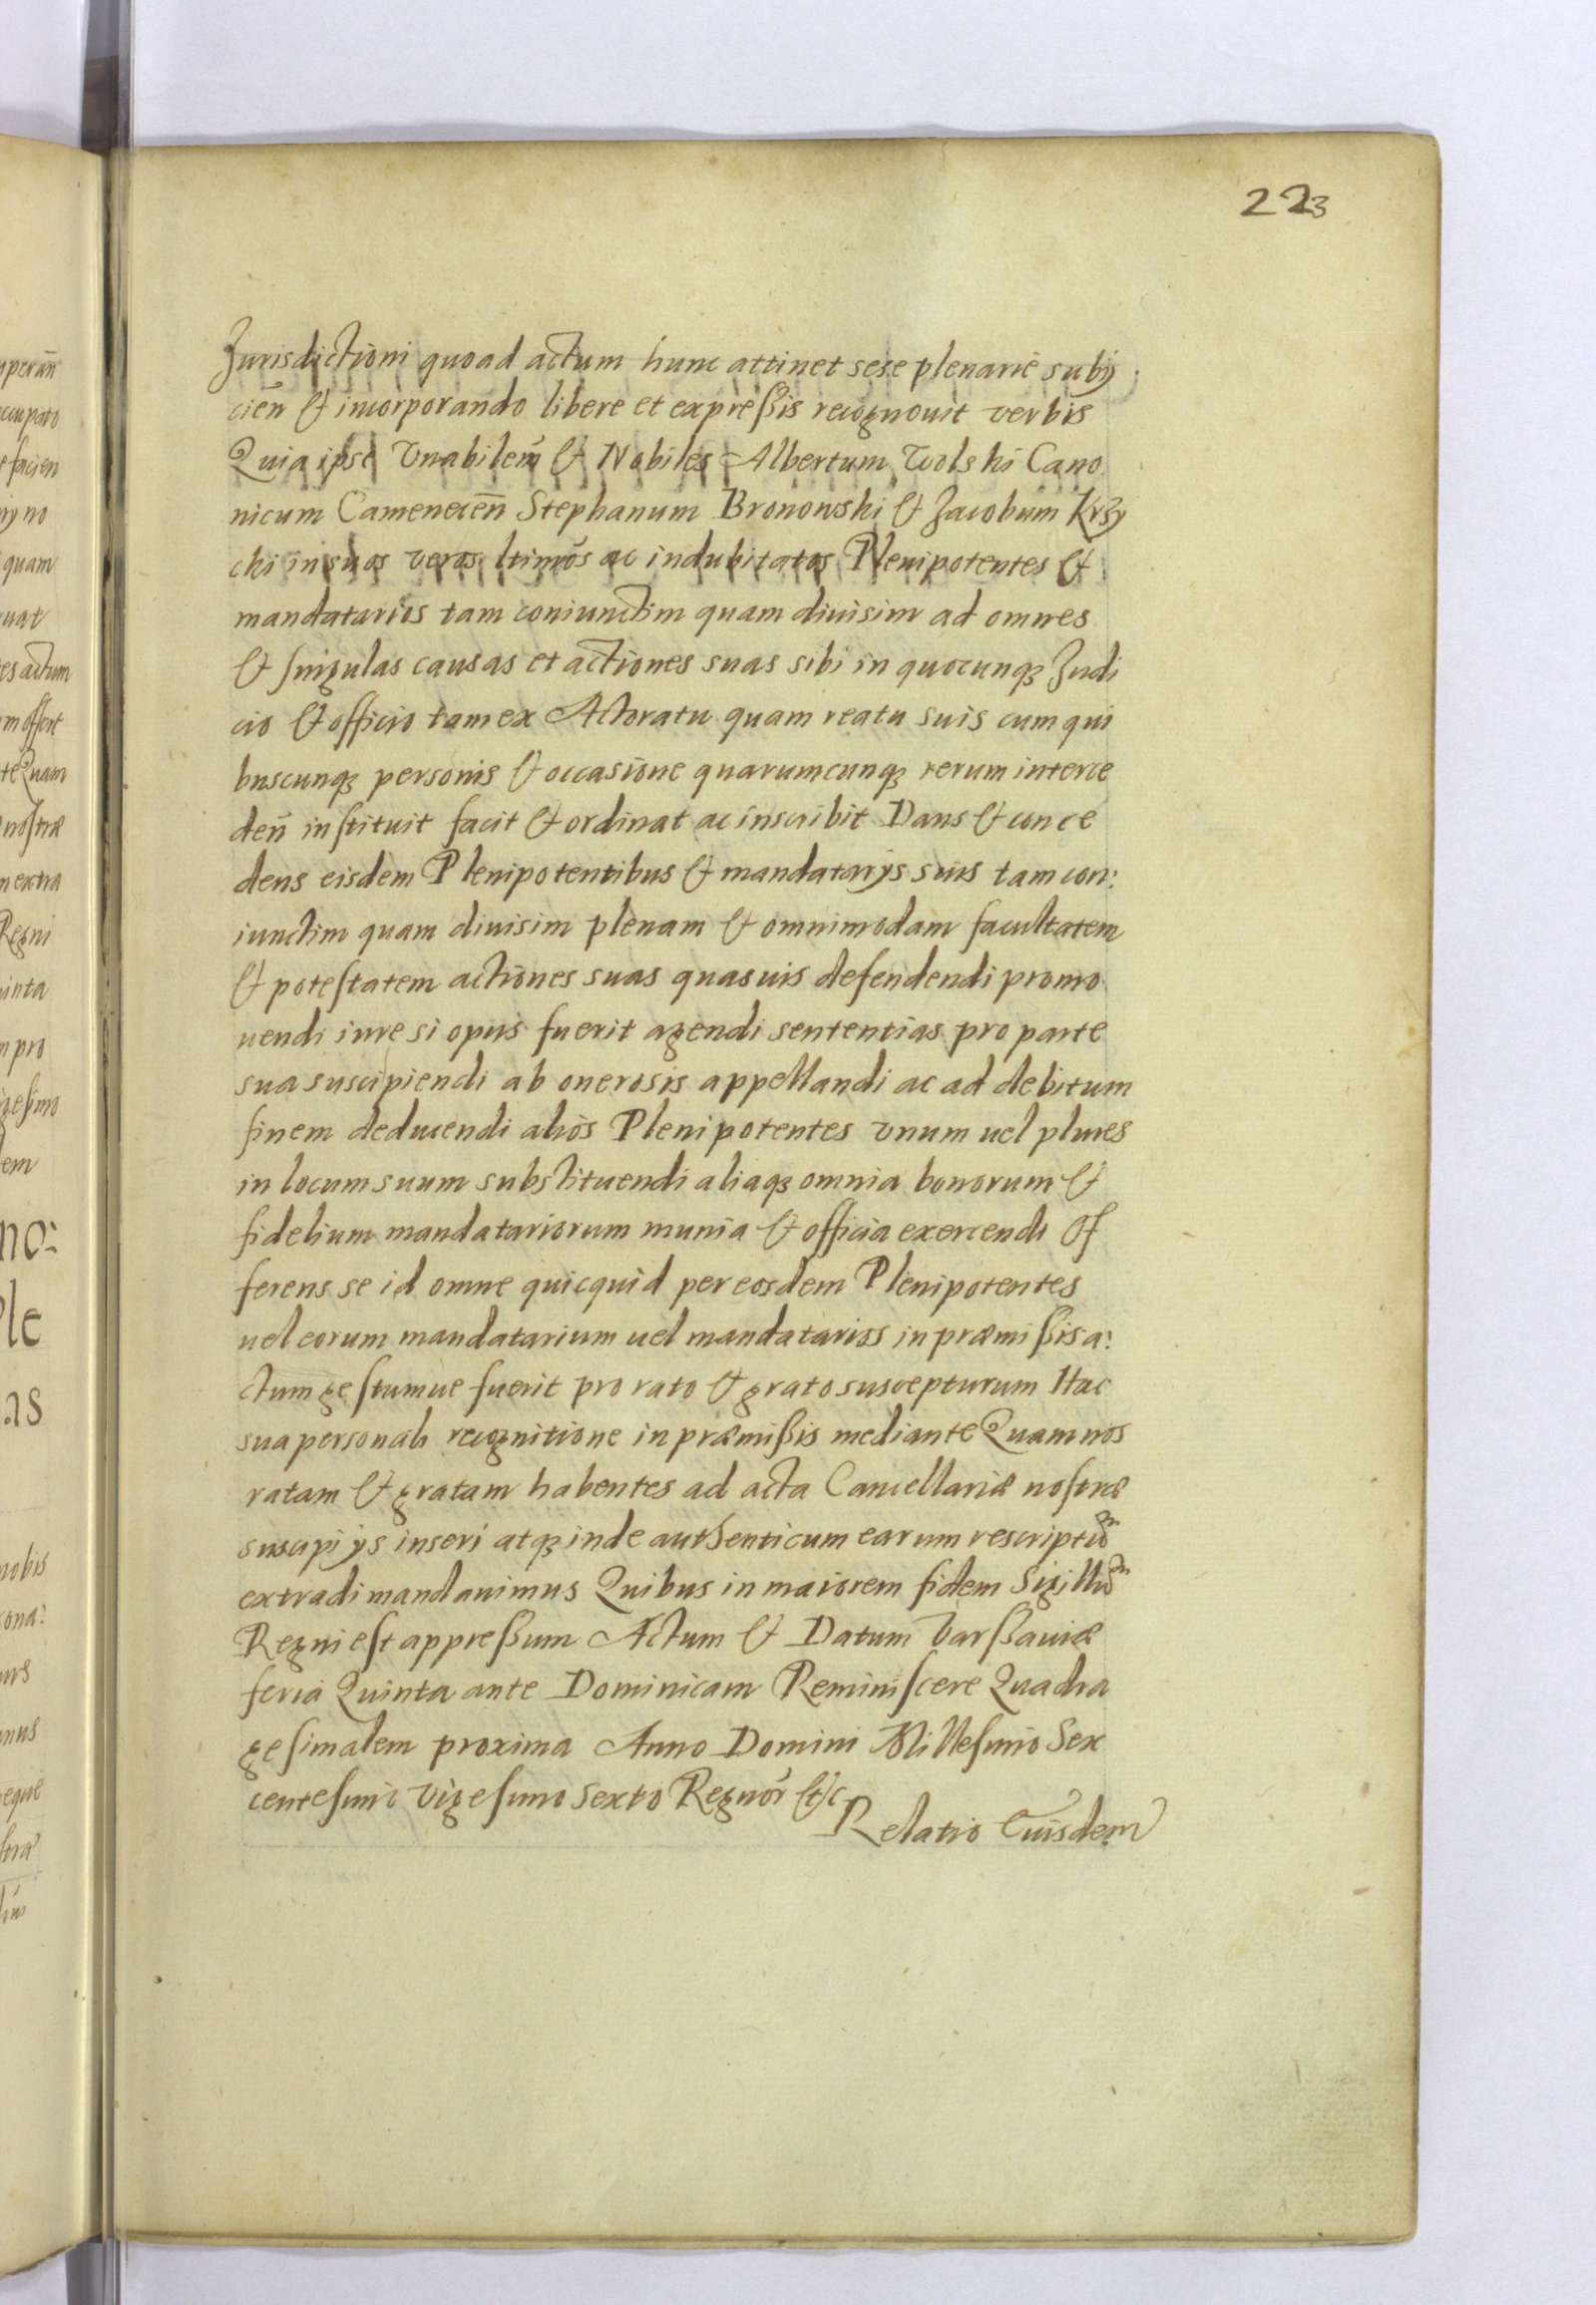 223
Jurisdictioni quoad actum hunc attinet sese plenarie subij
cien̄ & incorporando libere et expreßis recognouit verbis
Quia ipse Vnabilem̄ & Nobiles Albertum Wolski Cano
nicum Camenecen̄ Stephanum Bronowski & Jacobum Krzy
cki in suos veros ltimos ac indubitatos Plenipotentes &
mandatarios tam coniunctim quam diuisim ad omnes
& singulas causas et actiones suas sibi in quocunqꝫ Judi
cio & officio tam ex Actoratu quam reatu suis cum qui
buscunqꝫ personis & occasione quarumcunqꝫ rerum interce
den̄ instituit facit & ordinat ac inscribit Dans & conce
dens eisdem Plenipotentibus & mandatarijs suis tam con:
iunctim quam diuisim plenam & omnimodam facultatem
& potestatem actiones suas quasuis defendendi promo
uendi iure si opus fuerit agendi sententias pro parte
sua suscipiendi ab onerosis appellandi ac ad debitum
finem deducendi alios Plenipotentes vnum uel plures
in locum suum substituendi aliaqꝫ omnia bonorum &
fidelium mandatariorum munia & officia exercendi Of
ferens se id omne quicquid per eosdem Plenipotentes
uel eorum mandatarium uel mandatarios in præmißis a:
ctum gestumue fuerit pro rato & grato suscepturum Hac
sua personali recognitione in præmißis mediante Quam nos
ratam & gratam habentes ad acta Cancellariæ nostræ
suscipi ijs inseri atqꝫ inde authenticum earum rescriptum
extradi mandauimus Quibus in maiorem fidem Sigillum
Regni est appreßum Actum & Datum Varßauiæ
feria Quinta ante Dominicam Reminiscere Quadra
gesimalem proxima Anno Domini Millesimo Sex
centesimo Vigesimo Sexto Regnor̄ &c
Relatio Eiusdem